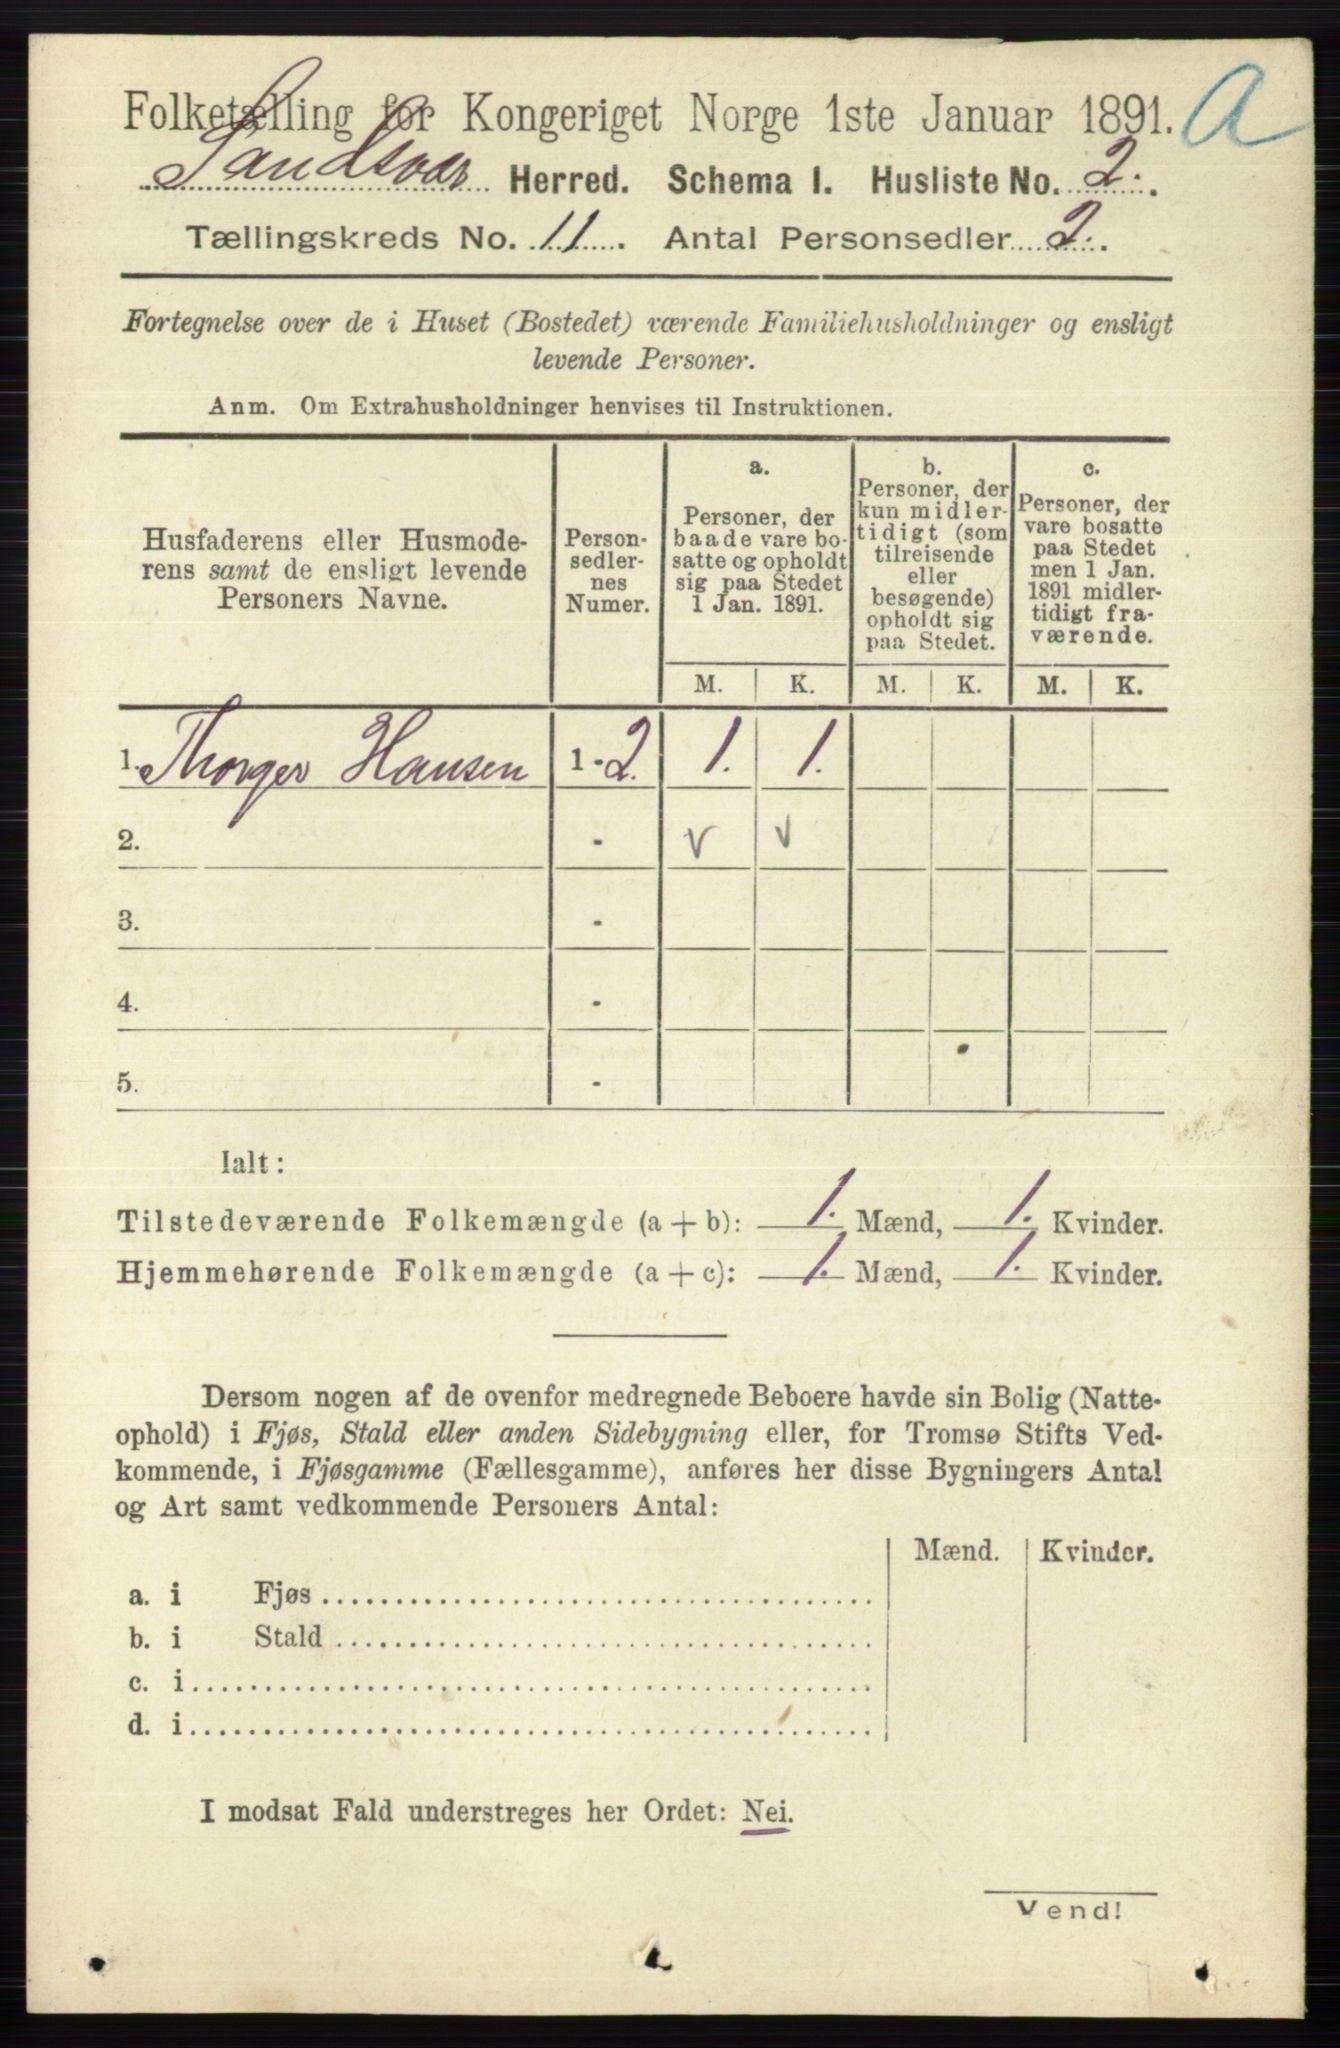 Folketælling for Kongeriget Norge 1ste Januar 1891. A
Sandsvær Herred. Schema I. Husliste No. 2.
Tællingskreds No. 11. Antal Personsedler 2.
Fortegnelse over de i Huset (Bostedet) værende Familiehusholdninger og ensligt
levende Personer.
Anm. Om Extrahusholdninger henvises til Instruktionen.
Husfaderens eller Husmode-
rens samt de ensligt levende
Personers Navne.
Person-
sedler-
nes
Numer.
a.
Personer, der
baade vare bo-
satte og opholdt
sig paa Stedet
1 Jan. 1891.
b.
Personer, der
kun midler-
tidigt (som
tilreisende
eller
besøgende)
opholdt sig
paa Stedet.
c.
Personer, der
vare bosatte
paa Stedet
men 1 Jan.
1891 midler-
tidigt fra-
værende.
M. K. M. K. M. K.
1. Thorger Hansen 1-2. 1. 1.
2. - v v
3. -
4. -
5. -
Ialt:
Tilstedeværende Folkemængde (a + b): 1. Mænd, 1. Kvinder.
Hjemmehørende Folkemængde (a + c): 1. Mænd, 1. Kvinder.
Dersom nogen af de ovenfor medregnede Beboere havde sin Bolig (Natte-
ophold) i Fjøs, Stald eller anden Sidebygning eller, for Tromsø Stifts Ved-
kommende, i Fjøsgamme (Fællesgamme), anføres her disse Bygningers Antal
og Art samt vedkommende Personers Antal:
Mænd. Kvinder.
a. i Fjøs
b. i Stald
c. i
d. i
I modsat Fald understreges her Ordet: Nei.
Vend!